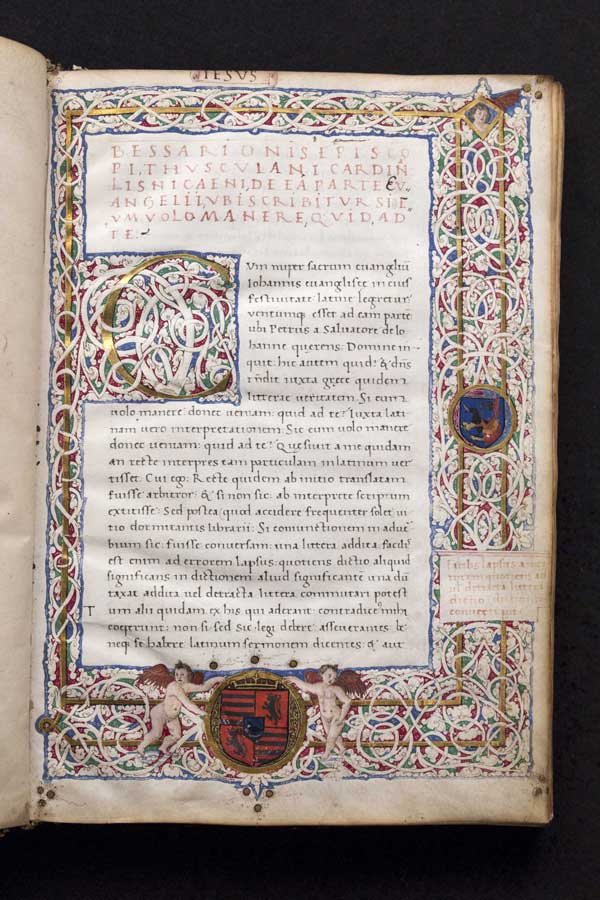 IESUS
BESSARIONIS EPISCO
PI, THUSCULANI CARDIN
LIS NICAENI, DE EA PARTE EV
ANGELII, UBI SCRIBITUR SI E
UM VOLO MANERE, QUID, AD
TE:
Cum nuper sacrum euangliũ
Iohannis euangliste in eius
festiuitate latine legeretur
uentumq; esset ad eam partē
ubi Petrus a Saluatore de Io
hanne querens: Domine in
quit: hic autem quid? & dñs
rñdit iuxta grece quidem
litterae ueritatem. Si eum
uolo manere donec ueniam: quid ad te? Iuxta lati
nam uero interpretationem: Sic eum uolo manere
donec ueniam: quid ad te? Quesiuit a me quidam
an recte interpres eam particulam in latinum uer
tisset. Cui ego: Recte quidem ab initio translatam
fuisse arbitror: & si non sic ab interprete scriptum
extitisse. Sed postea (quod accidere frequenter solet) ui
tio dormitantis librarii: Si coniunctionem in aduer
bium sic fuisse conuersam: una littera addita. facilis
est enim ad errorem lapsus: quotiens dictio aliquid
significans in dictionem aliud significantē una dũ
taxat addita uel detracta littera commutari potest
um alii quidam ex his qui aderant: contradice mihi
coeperunt: non si sed sic legi debere asseuerantes be
neq; se habere latinum sermonem dicentes: & aut
T
facilis lapsus a
rorem quotiens ad
uel detracta littera
dictio